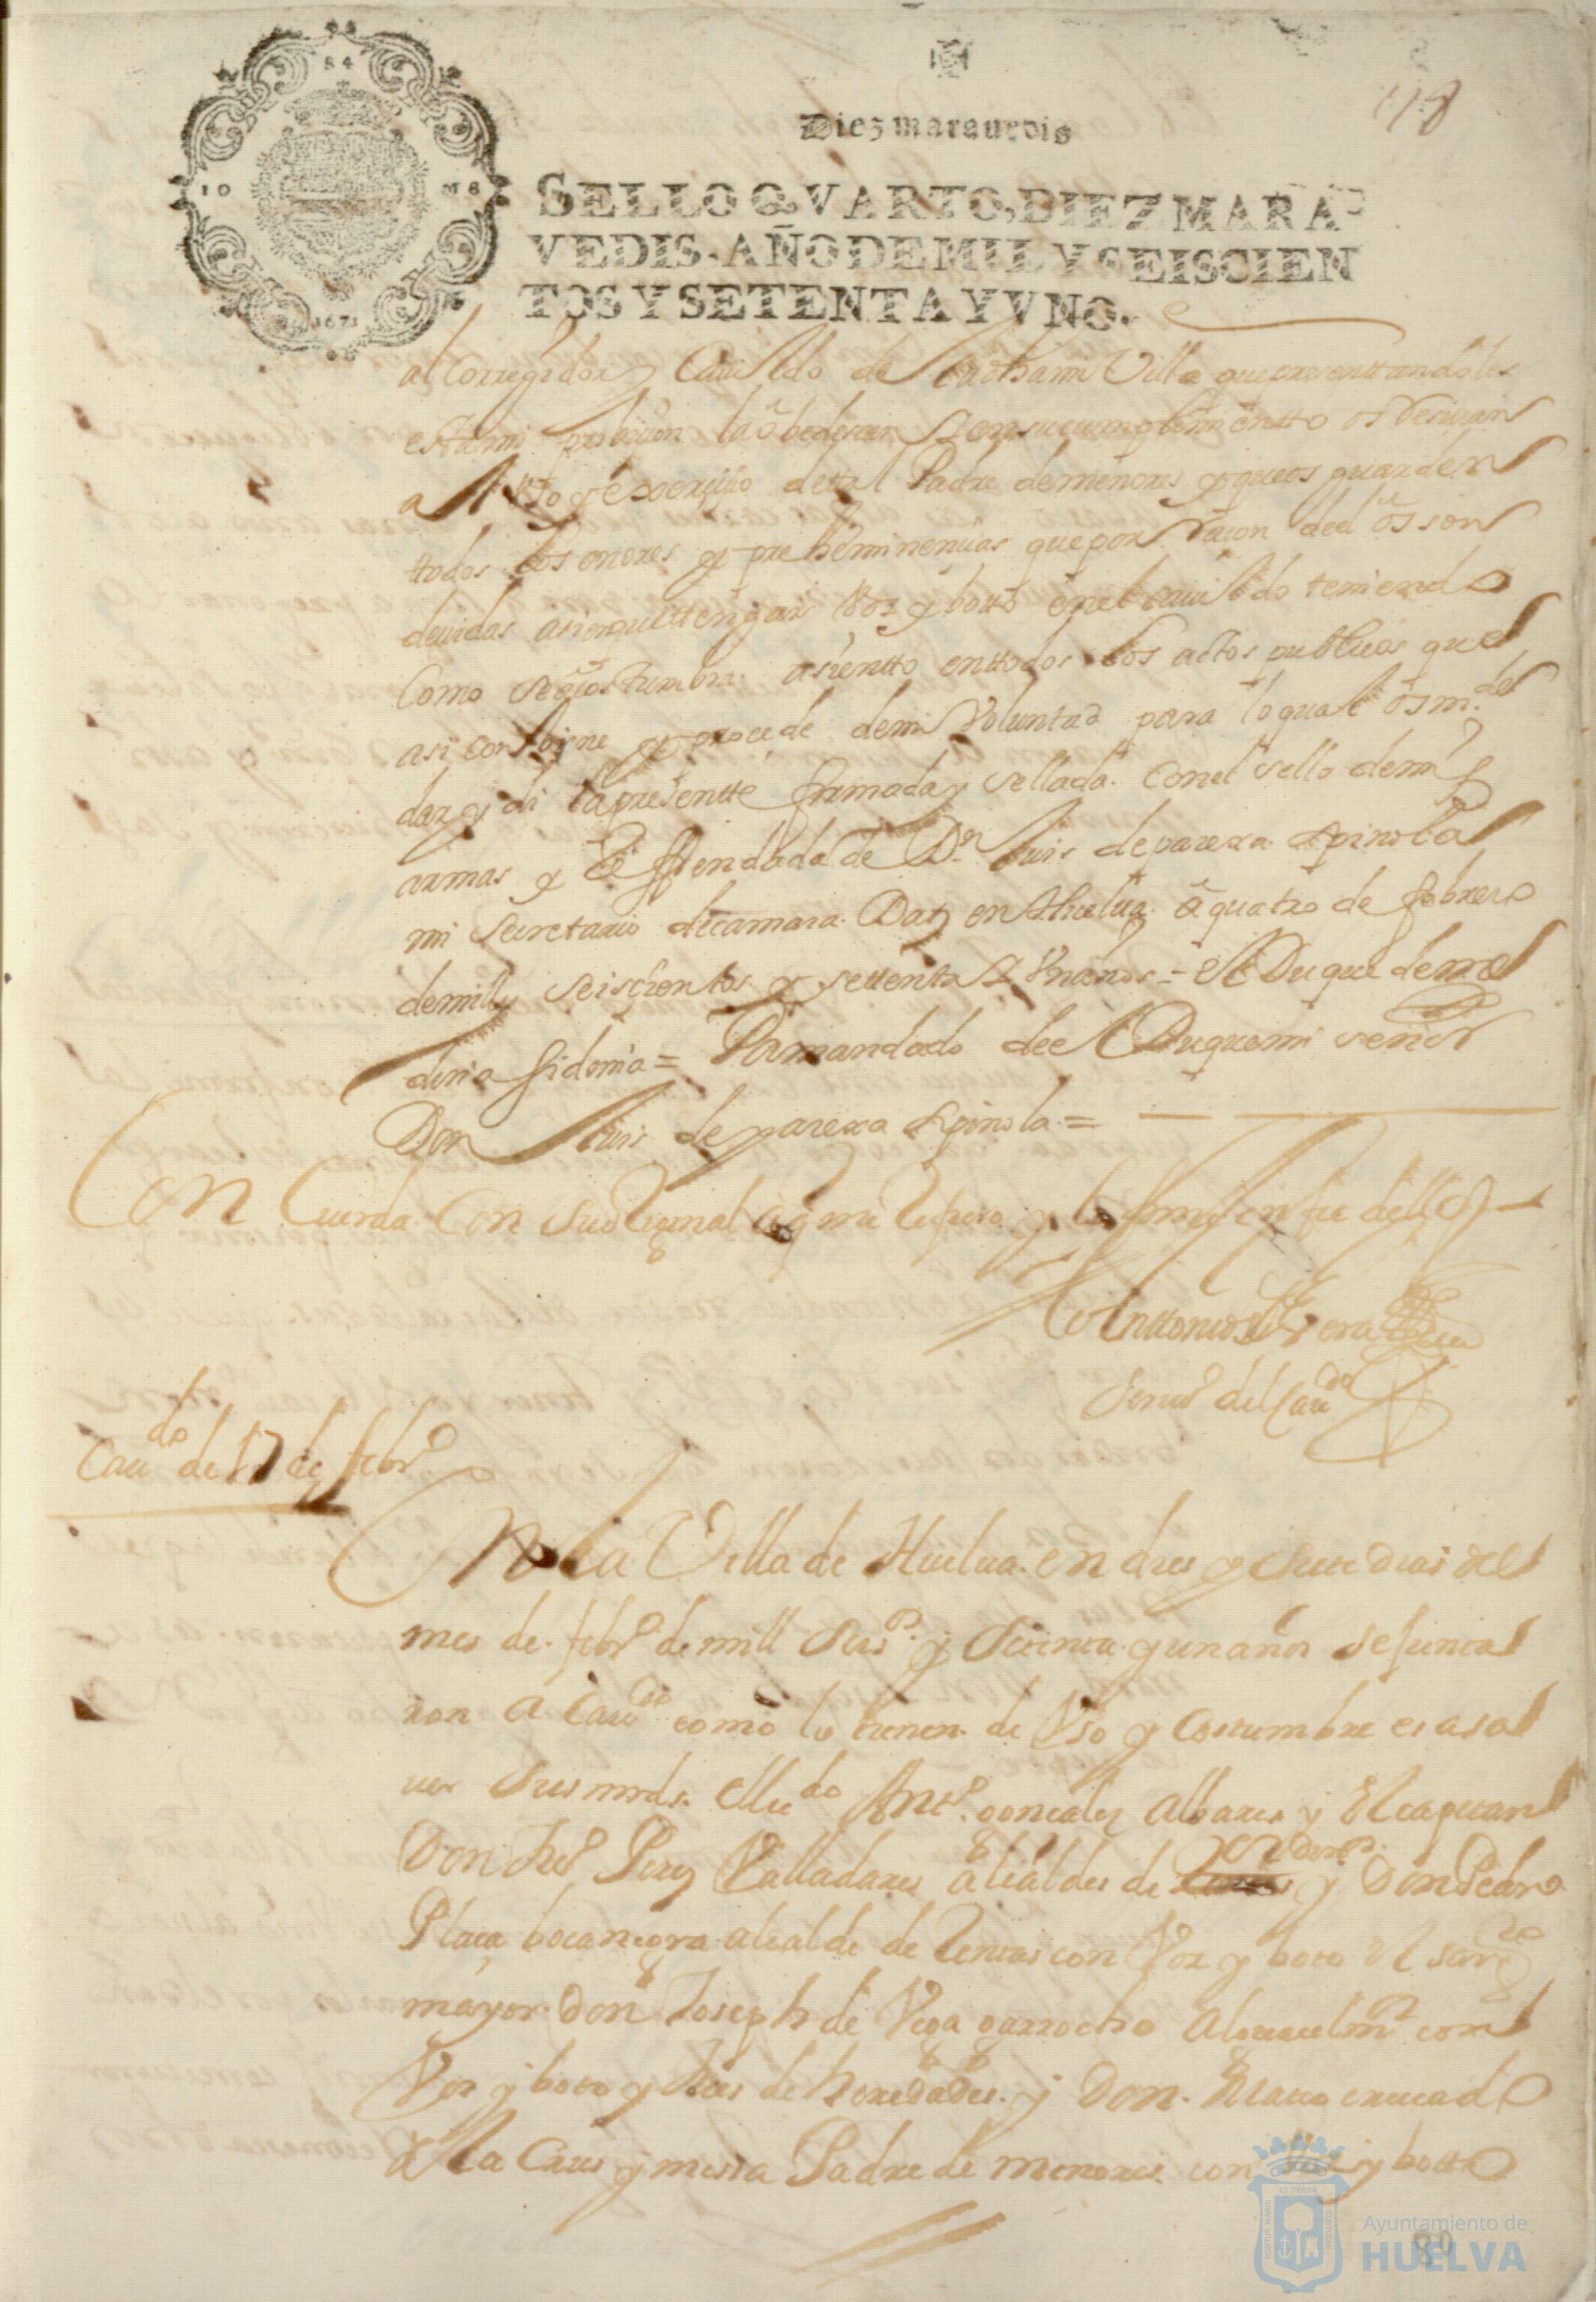 178
Diez marauedis
SELLO QVARTO, DIEZ MARA
VEDIS, AÑO DE MIL Y SEISCIEN
TOS Y SETENTA Y VNO.
84
10 M8
1671
al Corregidor y Cauildo de la dha mi Villa que presenttandoles
esta mi prouision la obedescan y en su cumplimientto os resiuan
a el Vso y exerçiçio de ttal Padre de menores y que os guarden
ttodos los onores y preheminençias que por raçon del os son
deuidas asi en que ttengais Voz y botto en el cauildo teniendo
Como se acostumbra asientto en ttodos los actos publicos que
asi conbiene y procede de mi Voluntad para lo qual os m.de
dar y di la presentte firmada y sellada con el sello de mis
armas y Refrendada de Dn Luis de parexa spinola
mi secretario de camara. Dat en Huelua a quatro de febrero
de mill y seiscientos y settenta y Vn años = El Duque de me
dina sidonia = Por mandado del Duque mi señor
Don Luis de parexa spinola =
Con Cuerda Con su orixinal a q me refiero y lo firme en fee dello
Anttonio de
Scriuo del Caudo
Caudo de 17 de febro
En la Villa de Huelua en dies y siete dias del
mes de febro de mill seiss y setenta y un años se junta
ron a Caudo como lo tienen de Vso y Costumbre es a sa
uer sus mrds. el licdo Anto gonçales albares y El capitan
Don Juo Perez Valladares alcaldes de ordino y Don Pedro
Plaça bocanegra alcalde de rentas con Voz y boto el sarxto
mayor Don Joseph de Vega garrocho alguacil mor con
Voz y boto y Jues de heredades y Don Mateo
de la Cruz y mesia Padre de menores con Voz y botto
80
Ayuntamiento de
HUELVA